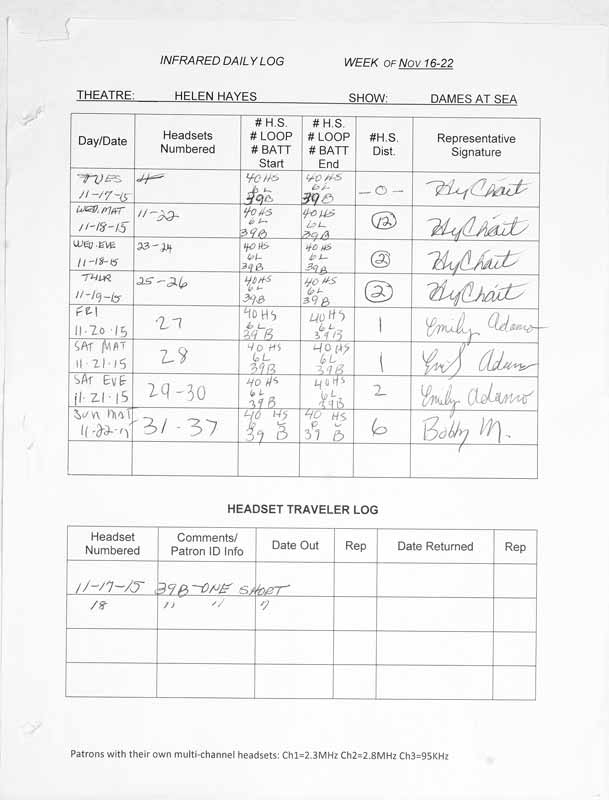 INFRARED DAILY LOG WEEK OF NOV 16-22
THEATRE: HELEN HAYES SHOW: DAMES AT SEA
Day/Date Headsets Numbered # H.S. # LOOP # BATT Start # H.S. # LOOP # BATT End #H.S. Dist. Representative Signature
TUES 11-17-15 40HS 6L 39B 40HS 6L 39B -0-
WED. MAT 11-18-15 11-22 40HS 6L 39B 40HS 6L 39B 12
WED. EVE 11-18-15 23-24 40HS 6L 39B 40HS 6L 39B 2
THUR 11-19-15 25-26 40HS 6L 39B 40HS 6L 39B 2
FRI 11.20.15 27 40HS 6L 39B 40HS 6L 39B 1 Emily Adamo
SAT MAT 11.21.15 28 40HS 6L 39B 40HS 6L 39B 1
SAT EVE 11.21.15 29-30 40HS 6L 39B 40HS 6L 39B 2 Emily Adamo
SUN MAT 11-22-15 31-37 40 HS 39 B 40 HS 39 B 6 Bobby M.
HEADSET TRAVELER LOG
Headset Numbered Comments/ Patron ID Info Date Out Rep Date Returned Rep
11-17-15 39B-ONE SHORT
18 " " "
Patrons with their own multi-channel headsets: Ch1=2.3MHz Ch2=2.8MHz Ch3=95KHz